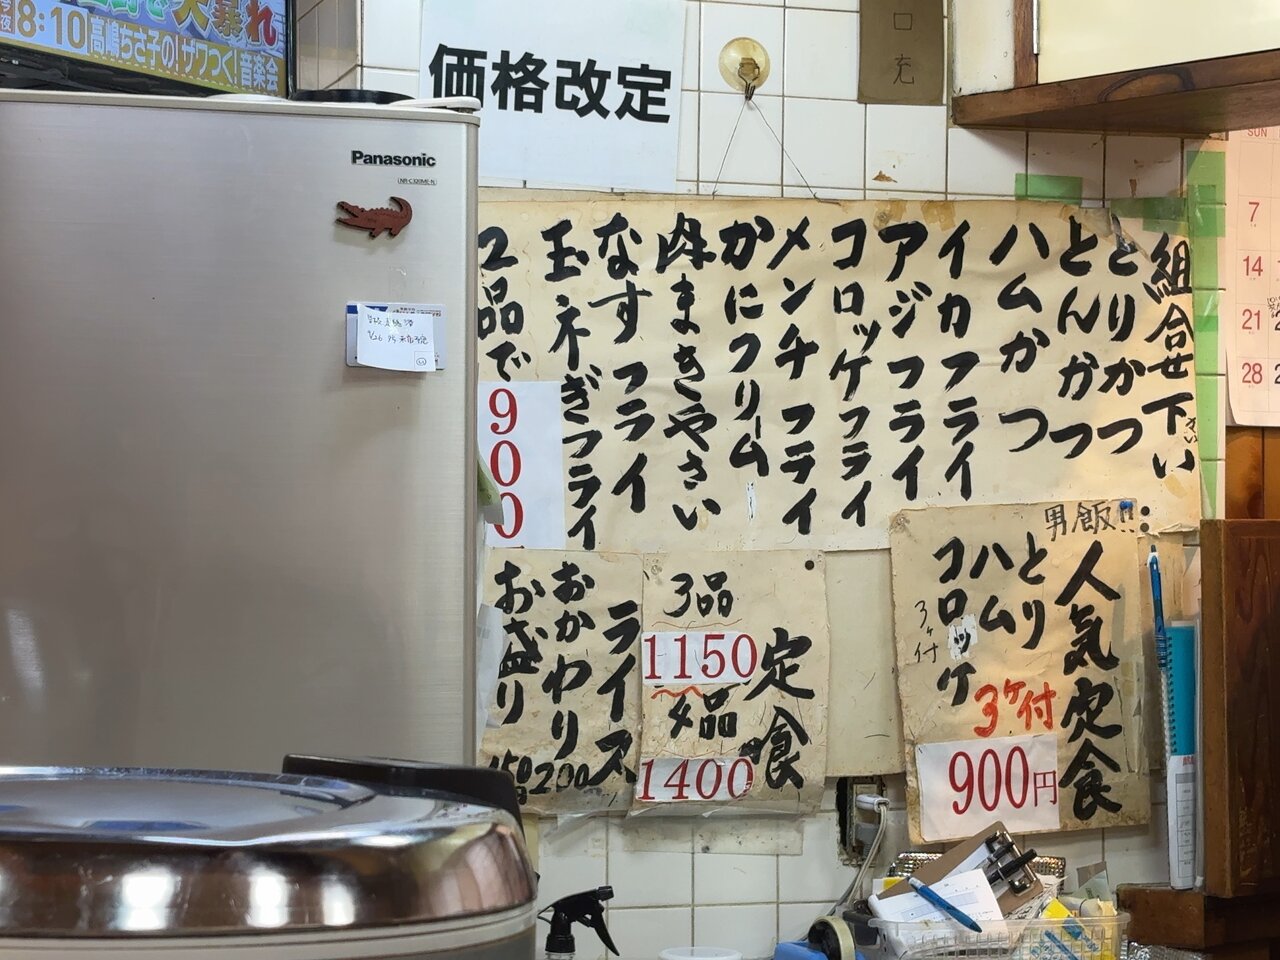 8:10高嶋ちさ子の!ザワつく!音楽会
価格改定
Panasonic
組合せ下さい
とりかつ
とんかつ
ハムかつ
イカフライ
アジフライ
コロッケフライ
メンチフライ
かにクリーム
肉まきやさい
なすフライ
玉ネぎフライ
2品で
900
男飯!!
人気定食
とり
ハム
コロッケ
3ヶ付
3ヶ付
900円
定食
3品
1150
4品
1400
ライス
おかわり
200
お盛り
SUN
7
14
21
28